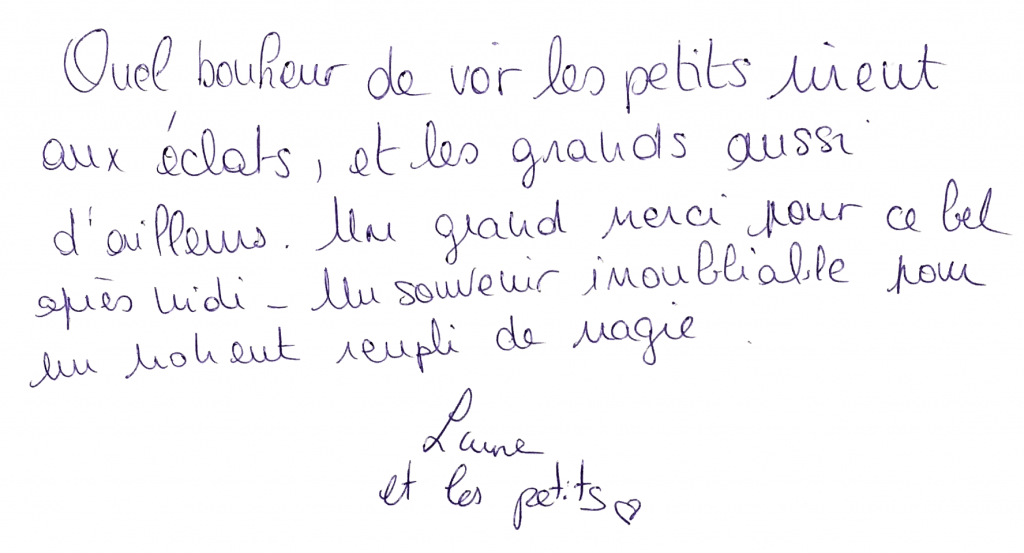 Quel bonheur de voir les petits rirent
aux éclats, et les grands aussi
d'ailleurs. Un grand merci pour ce bel
après midi - Un souvenir inoubliable pour
un moment rempli de magie.
et les petits ♡